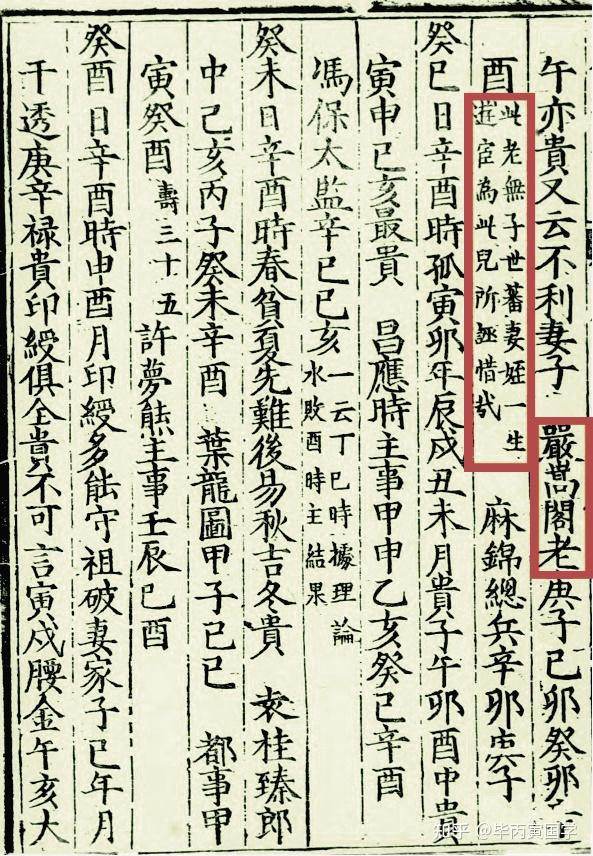 午亦貴又云不利妻子　嚴嵩閣老庚子己卯癸卯辛
酉此老無子世蕃妻姪一生逰宦為此兒所誣惜哉　麻錦總兵辛卯庚子
癸巳日辛酉時孤寅卯年辰戌丑未月貴子午卯酉中貴
寅申巳亥最貴　昌應時主事甲申乙亥癸巳辛酉
馮保太監辛巳己亥一云丁巳時據理論水敗酉時主結果
癸未日辛酉時春貧夏先難後易秋吉冬貴　袁桂臻郎
中己亥丙子癸未辛酉　葉龍圖甲子己巳　都事甲
寅癸酉壽三十五　許夢熊主事壬辰己酉
癸酉日辛酉時申酉月印綬多能守祖破妻家子巳年月
干透庚辛禄貴印綬俱全貴不可言寅戌腰金午亥大
知乎 @毕丙寅国学